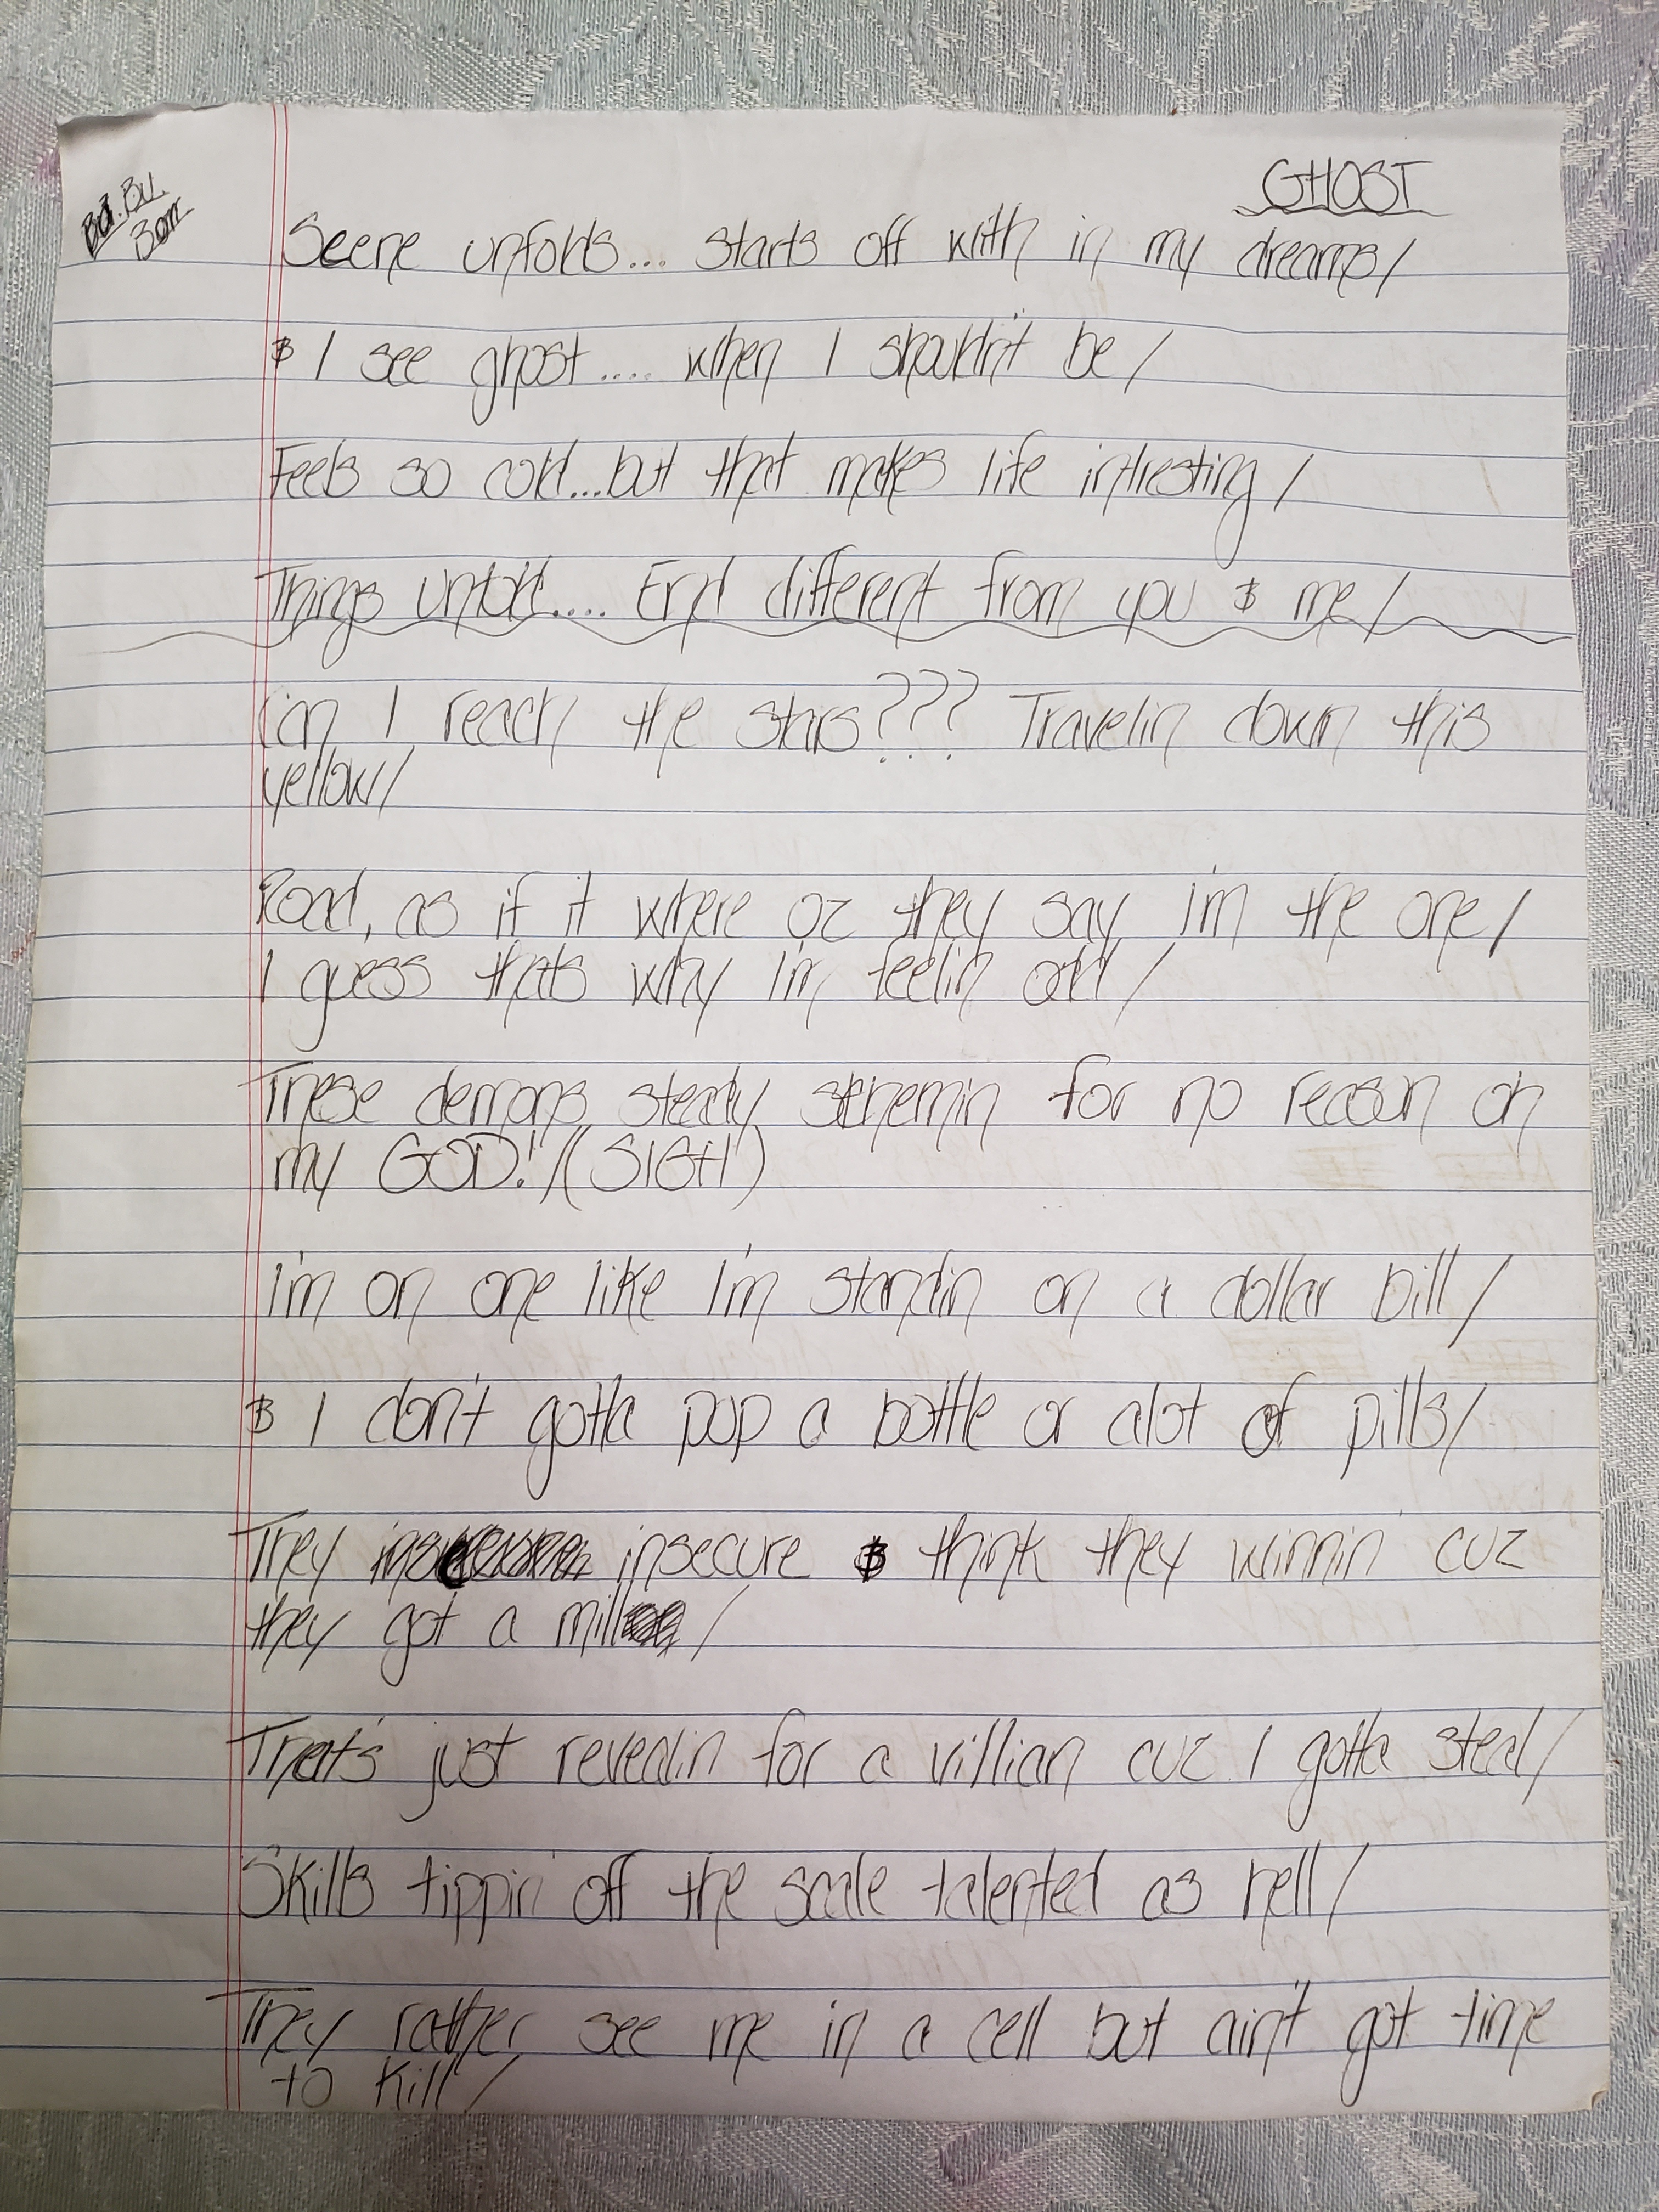 GHOST
Scene unfolds... starts off with in my dreams/
& I see ghost.... when I shouldn't be/
Feels so cold...but that makes life intresting/
Things unfold.... End different from you & me/
Can I reach the stars??? Travelin down this
yellow/
Road, as if it where oz they say I'm the one/
I guess thats why I'm feelin odd/
These demons steady schemin for no reason oh
my GOD!/(SIGH)
I'm on one like I'm standin on a dollar bill/
& I don't gotta pop a bottle or alot of pills/
They insecure & think they winnin' cuz
they got a mill/
That's just revealin for a villian cuz I gotta steal/
Skills tippin' off the scale talented as hell/
They rather see me in a cell but ain't got time
to kill/